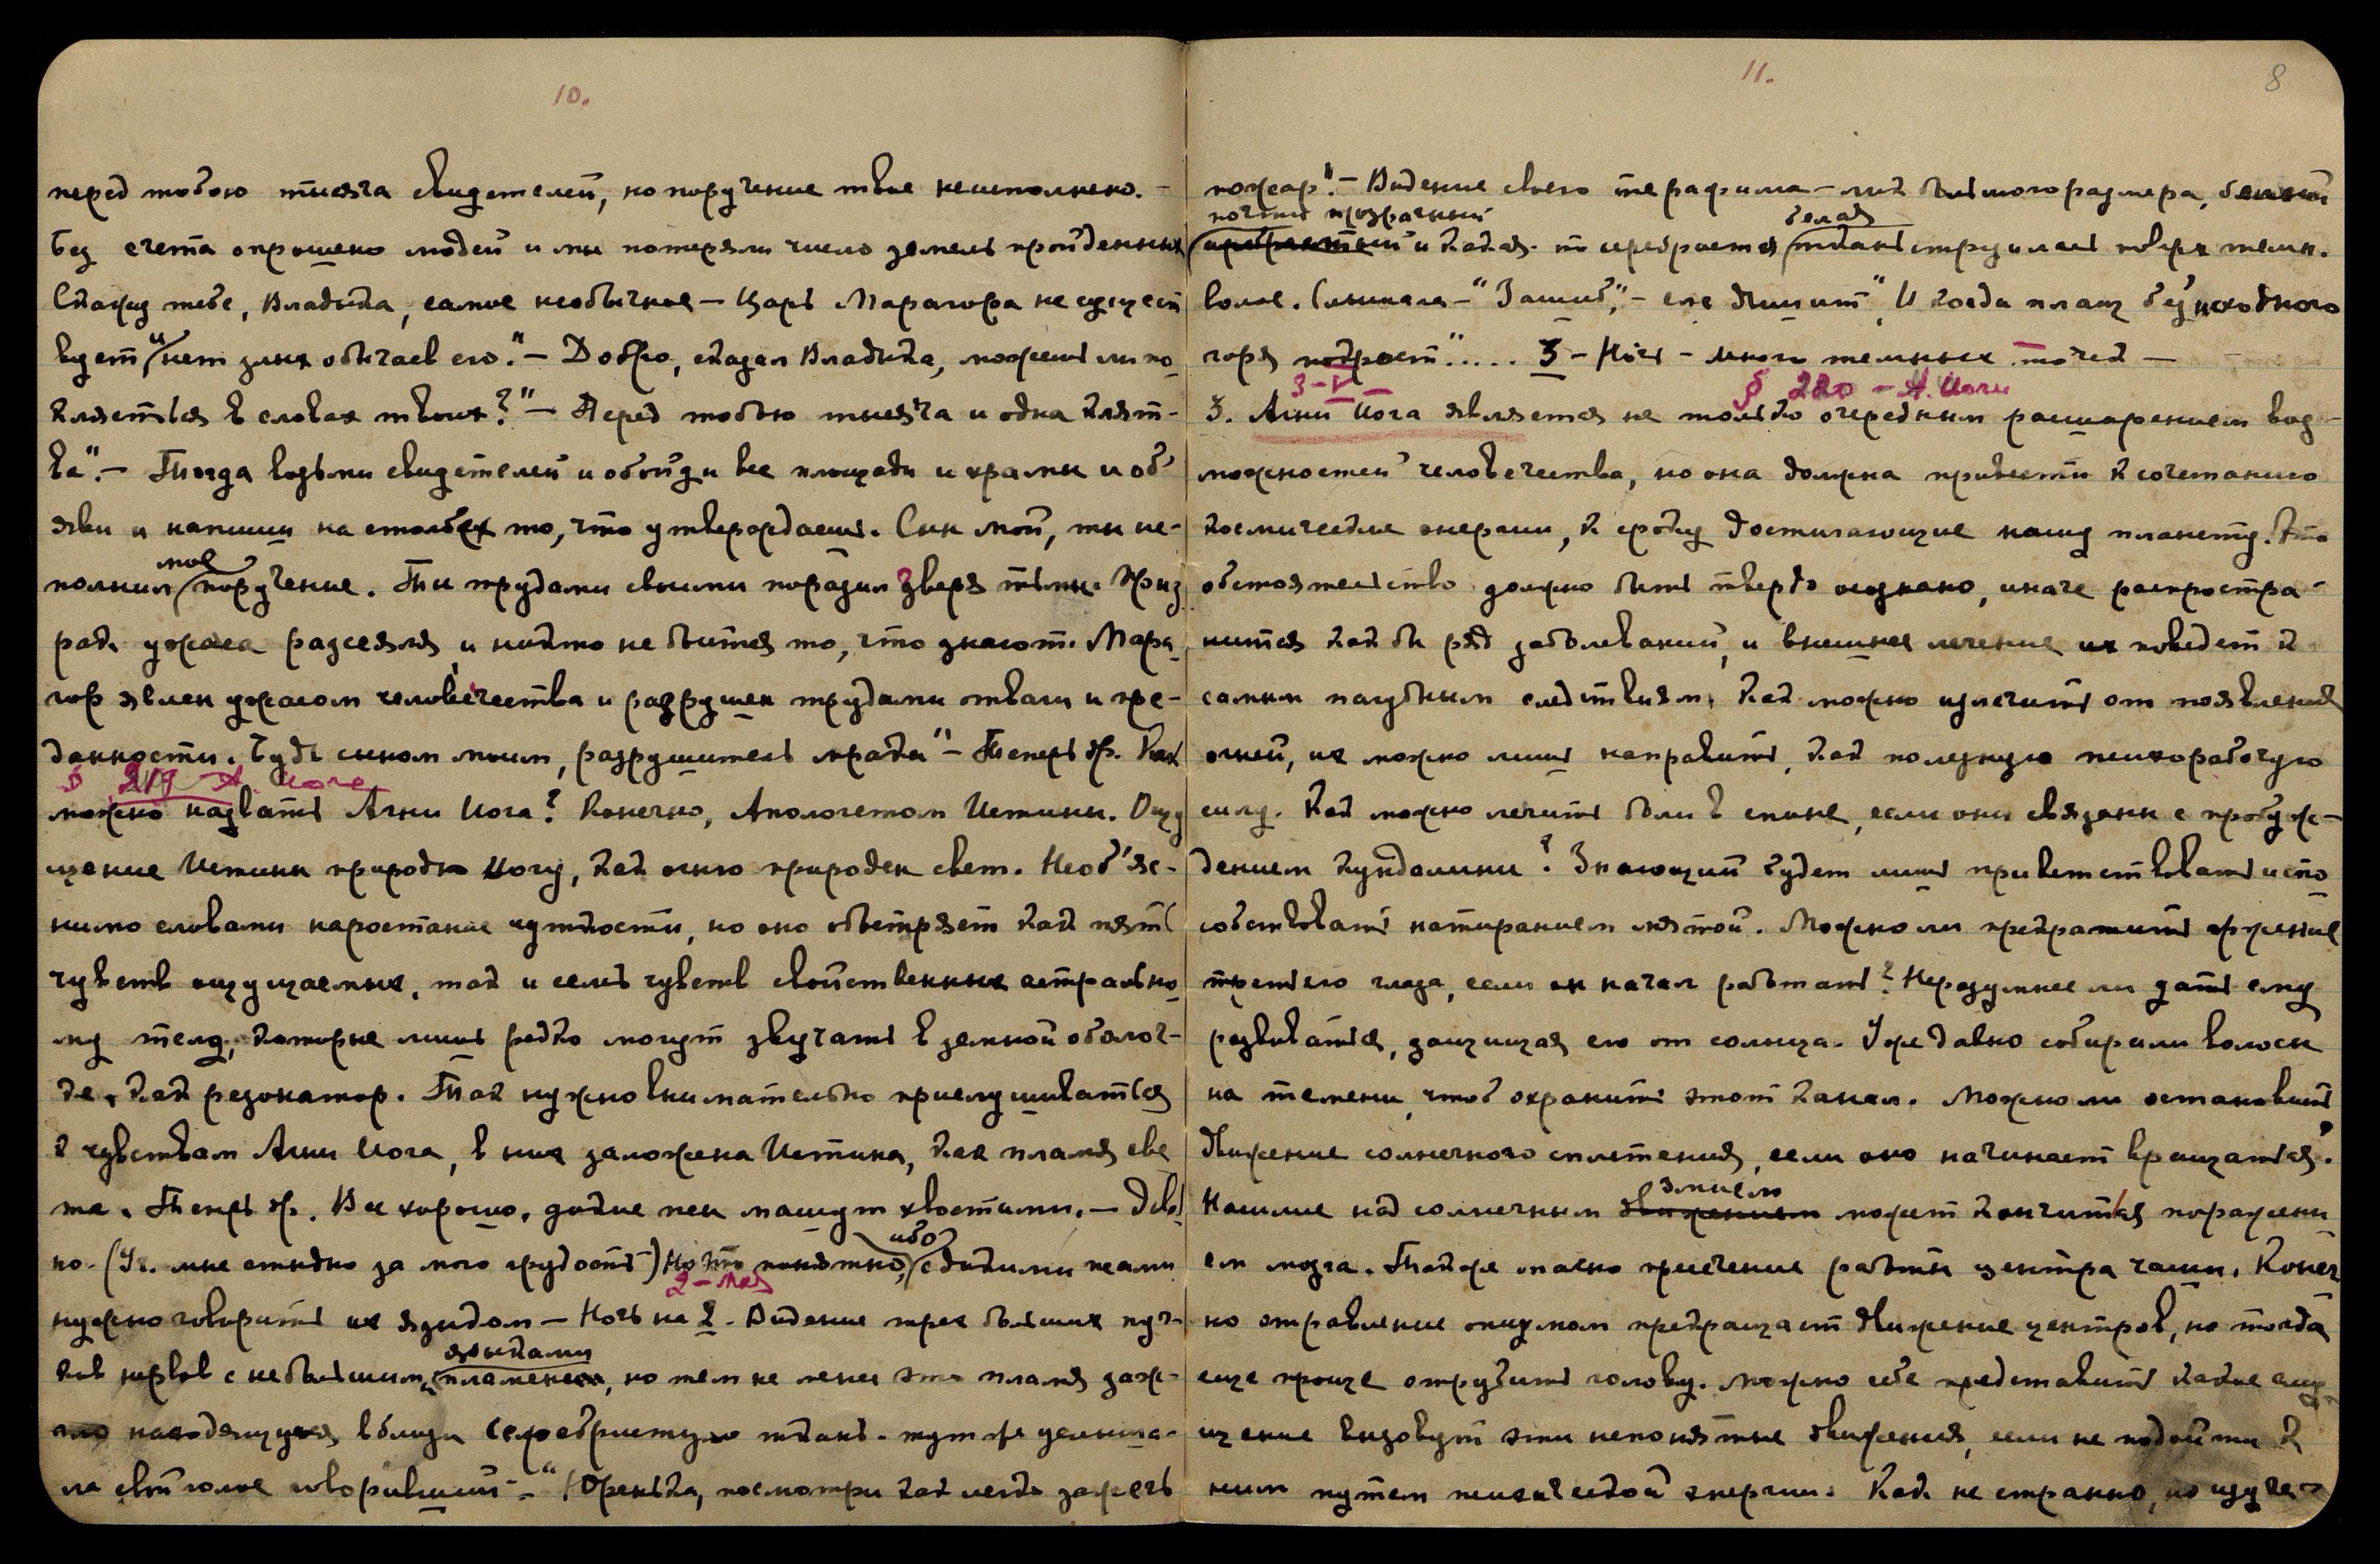 10.
перед тобою тысяча свидетелей, но поручение твое неисполнено. –
Без счета опрошено людей и мы потеряли число земель пройденных
Скажу тебе, Владыка, самое необычное – Царь Марагора не сущест
вует и нет злых обычаев его." – Добро, сказал Владыка, можешь ли по
клясться в словах твоих?" – Перед тобою тысяча и одна клят-
ва". – Тогда возьми свидетелей и обойди все площади и храмы и об'
яви и напиши на столбах то, что утверждаешь. Сын мой, ты ис-
мое
полнил поручение. Ты трудами своими поразил Зверя тьмы. Приз
рак ужаса рассеялся, и никто не боится то, что знают. Мара
гор явлен ужасом человечества и разрушен трудами отваги и пре-
данности. Будь сыном моим, разрушитель мрака" – Теперь др. Как
§ 219 А. Йоге
можно назвать Агни Йога? Конечно, Апологетом Истины. Ощу
щение Истины природно Йогу, как огню природен свет. Необ'яс-
нимо словами наростание чуткости, но оно обостряет как пять
чувств ощущаемых, так и семь чувств свойственных астрально
му телу, которые лишь редко могут звучать в земной оболоч-
ке, как резонатор. Так нужно внимательно прислушиваться
к чувствам Агни Йога, в них заложена Истина, как пламя све
та. Теперь др. Все хорошо, дикие псы машут хвостами. –
но. (Ур. мне стыдно за мою грубость) Но это понятно, с дикими псами
ибо
2 – Мая
нужно говорить их языком – Ночь на 2. Видение трех больших пуч-
язычками
ков нервов с небольшим пламенем, но тем не менее это пламя заж-
гло находящуюся вблизи серебристую ткань. тут же услыша-
ла свой голос говоривший – "Юренька, посмотри как легко зажечь
11.
8
пожар". – Видение своего терафима – лик большого размера, белый
почти прозрачный
белая
и какая-то серебристая ткань струилась поверх темн.
волос. Слышала – "Зашиб", – еле дышит". И когда плащ безысходного
горя . . . . . 3 – Ночь – много темных точек –
3 – V
§ 220 – А. Йоги
3. Агни Йога является не только очередным расширением воз-
можностей человечества, но она должна привести к сочетанию
космические энергии, к сроку достигающие нашу планету. Это
обстоятельство должно быть твердо осознано, иначе распростра-
нится как бы ряд заболеваний, и внешнее лечение их поведет к
самым пагубным следствиям. Как можно излечить от появления
огней, их можно лишь направить, как полезную психорабочую
силу. Как можно лечить боли в спине, если они связаны с пробуж-
дением Кундалини? Знающий будет лишь приветствовать и спо
собствовать натиранием мятой. Можно ли прекратить жжение
третьего глаза, если он начал работать? Неразумнее ли дать ему
развиваться, защищая его от солнца. Уже давно собирали волосы
на темени, чтоб охранить этот канал. Можно ли остановить
движение солнечного сплетения, если оно начинает вращаться?
змием
Насилие над солнечным движением может кончиться поражени
ем мозга. Также опасно пресечение работы центра чаши. Конеч
но отравление опиумом прекращает движение центров, но тогда
еще проще отрубить голову. Можно себе представить какие ощу
щение вызовут эти непонятные движения, если не подойти к
ним путем психической энергии. Как не странно, но изуче-